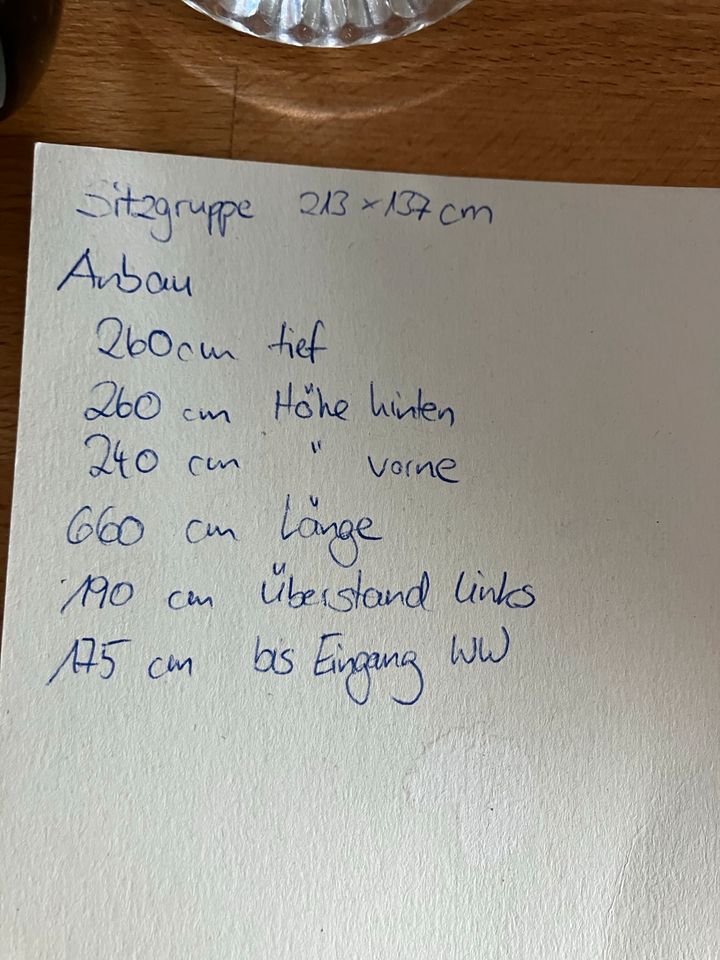 Sitzgruppe 213 x 137 cm
Anbau
260 cm tief
260 cm Höhe hinten
240 cm " vorne
660 cm Länge
190 cm Überstand links
175 cm bis Eingang WW